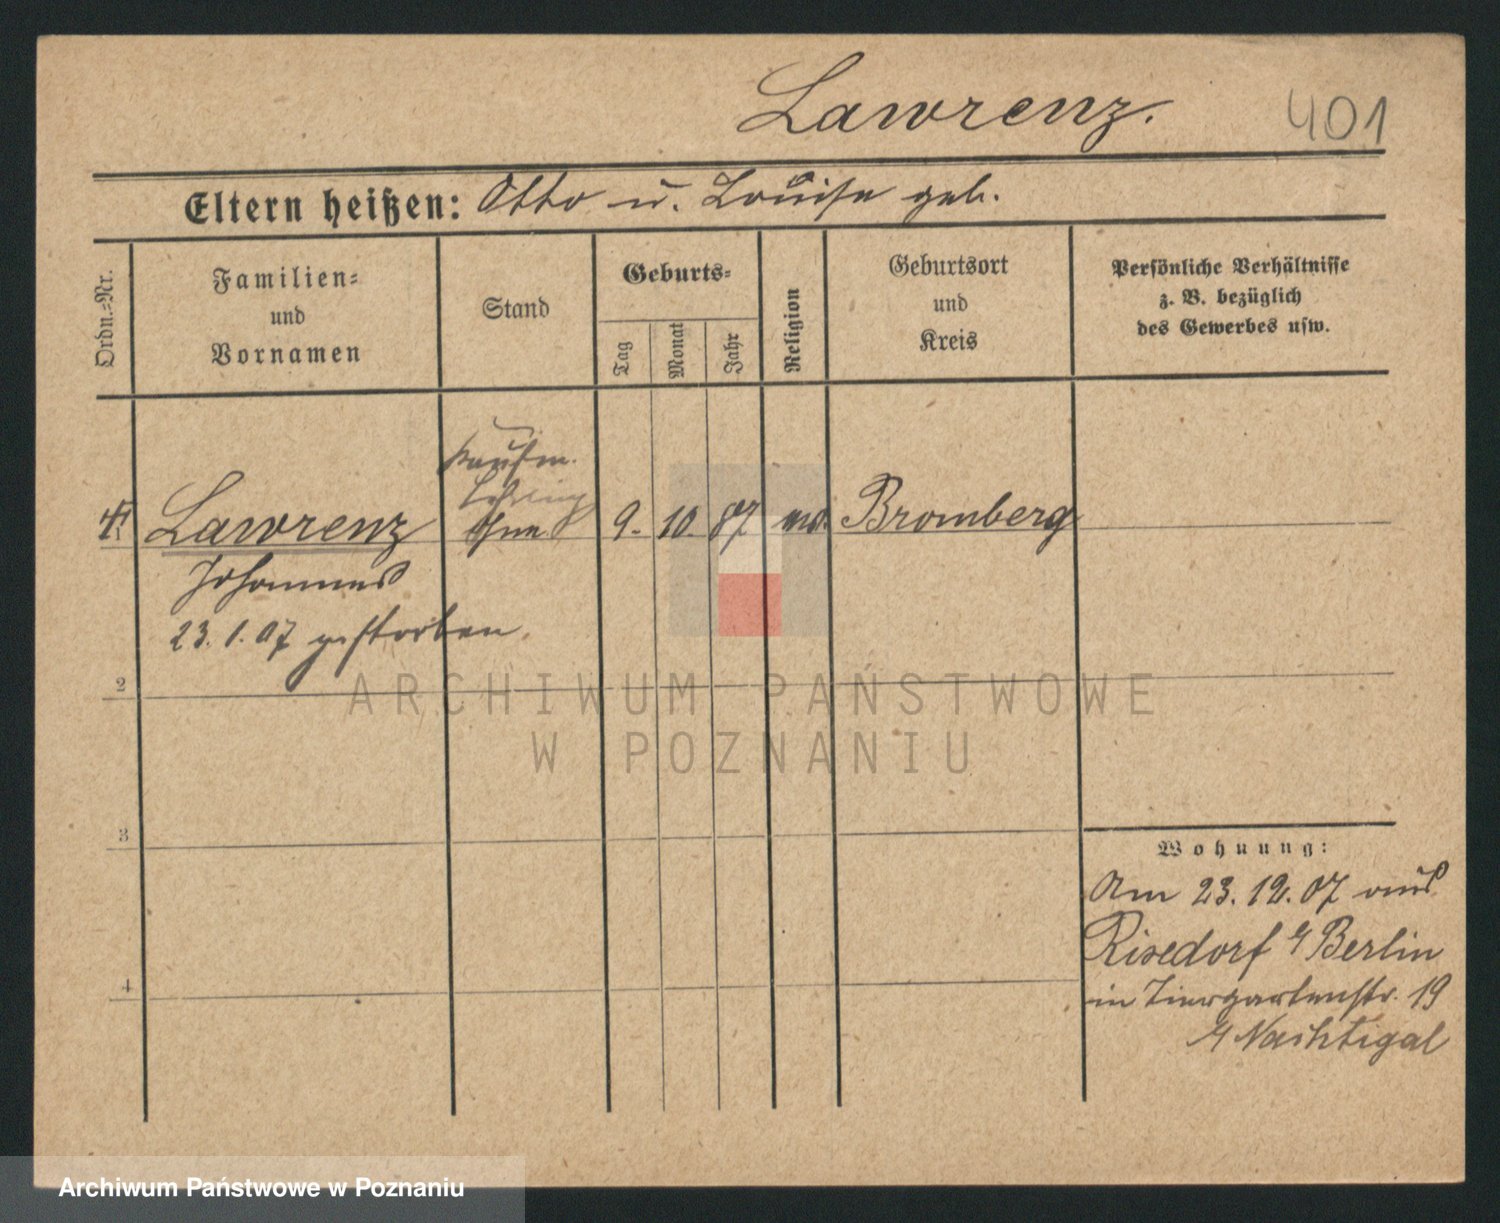 Lawrenz. 401
Eltern heißen: Otto u. Louise geb.
Ordn.=Nr.
Familien=
und
Vornamen
Stand
Geburts=
Tag
Monat
Jahr
Religion
Geburtsort
und
Kreis
Persönliche Verhältnisse
z. B. bezüglich
des Gewerbes usw.
Kaufm.
Lehrling
Lawrenz 9. 10. 87 Bromberg
Johannes
23.1.07 gestorben.
2
3
4
Wohnung:
Am 23.12.07 aus
Rixdorf Berlin
in Tiergartenstr. 19
Nachtigal
ARCHIWUM PAŃSTWOWE
W POZNANIU
Archiwum Państwowe w Poznaniu